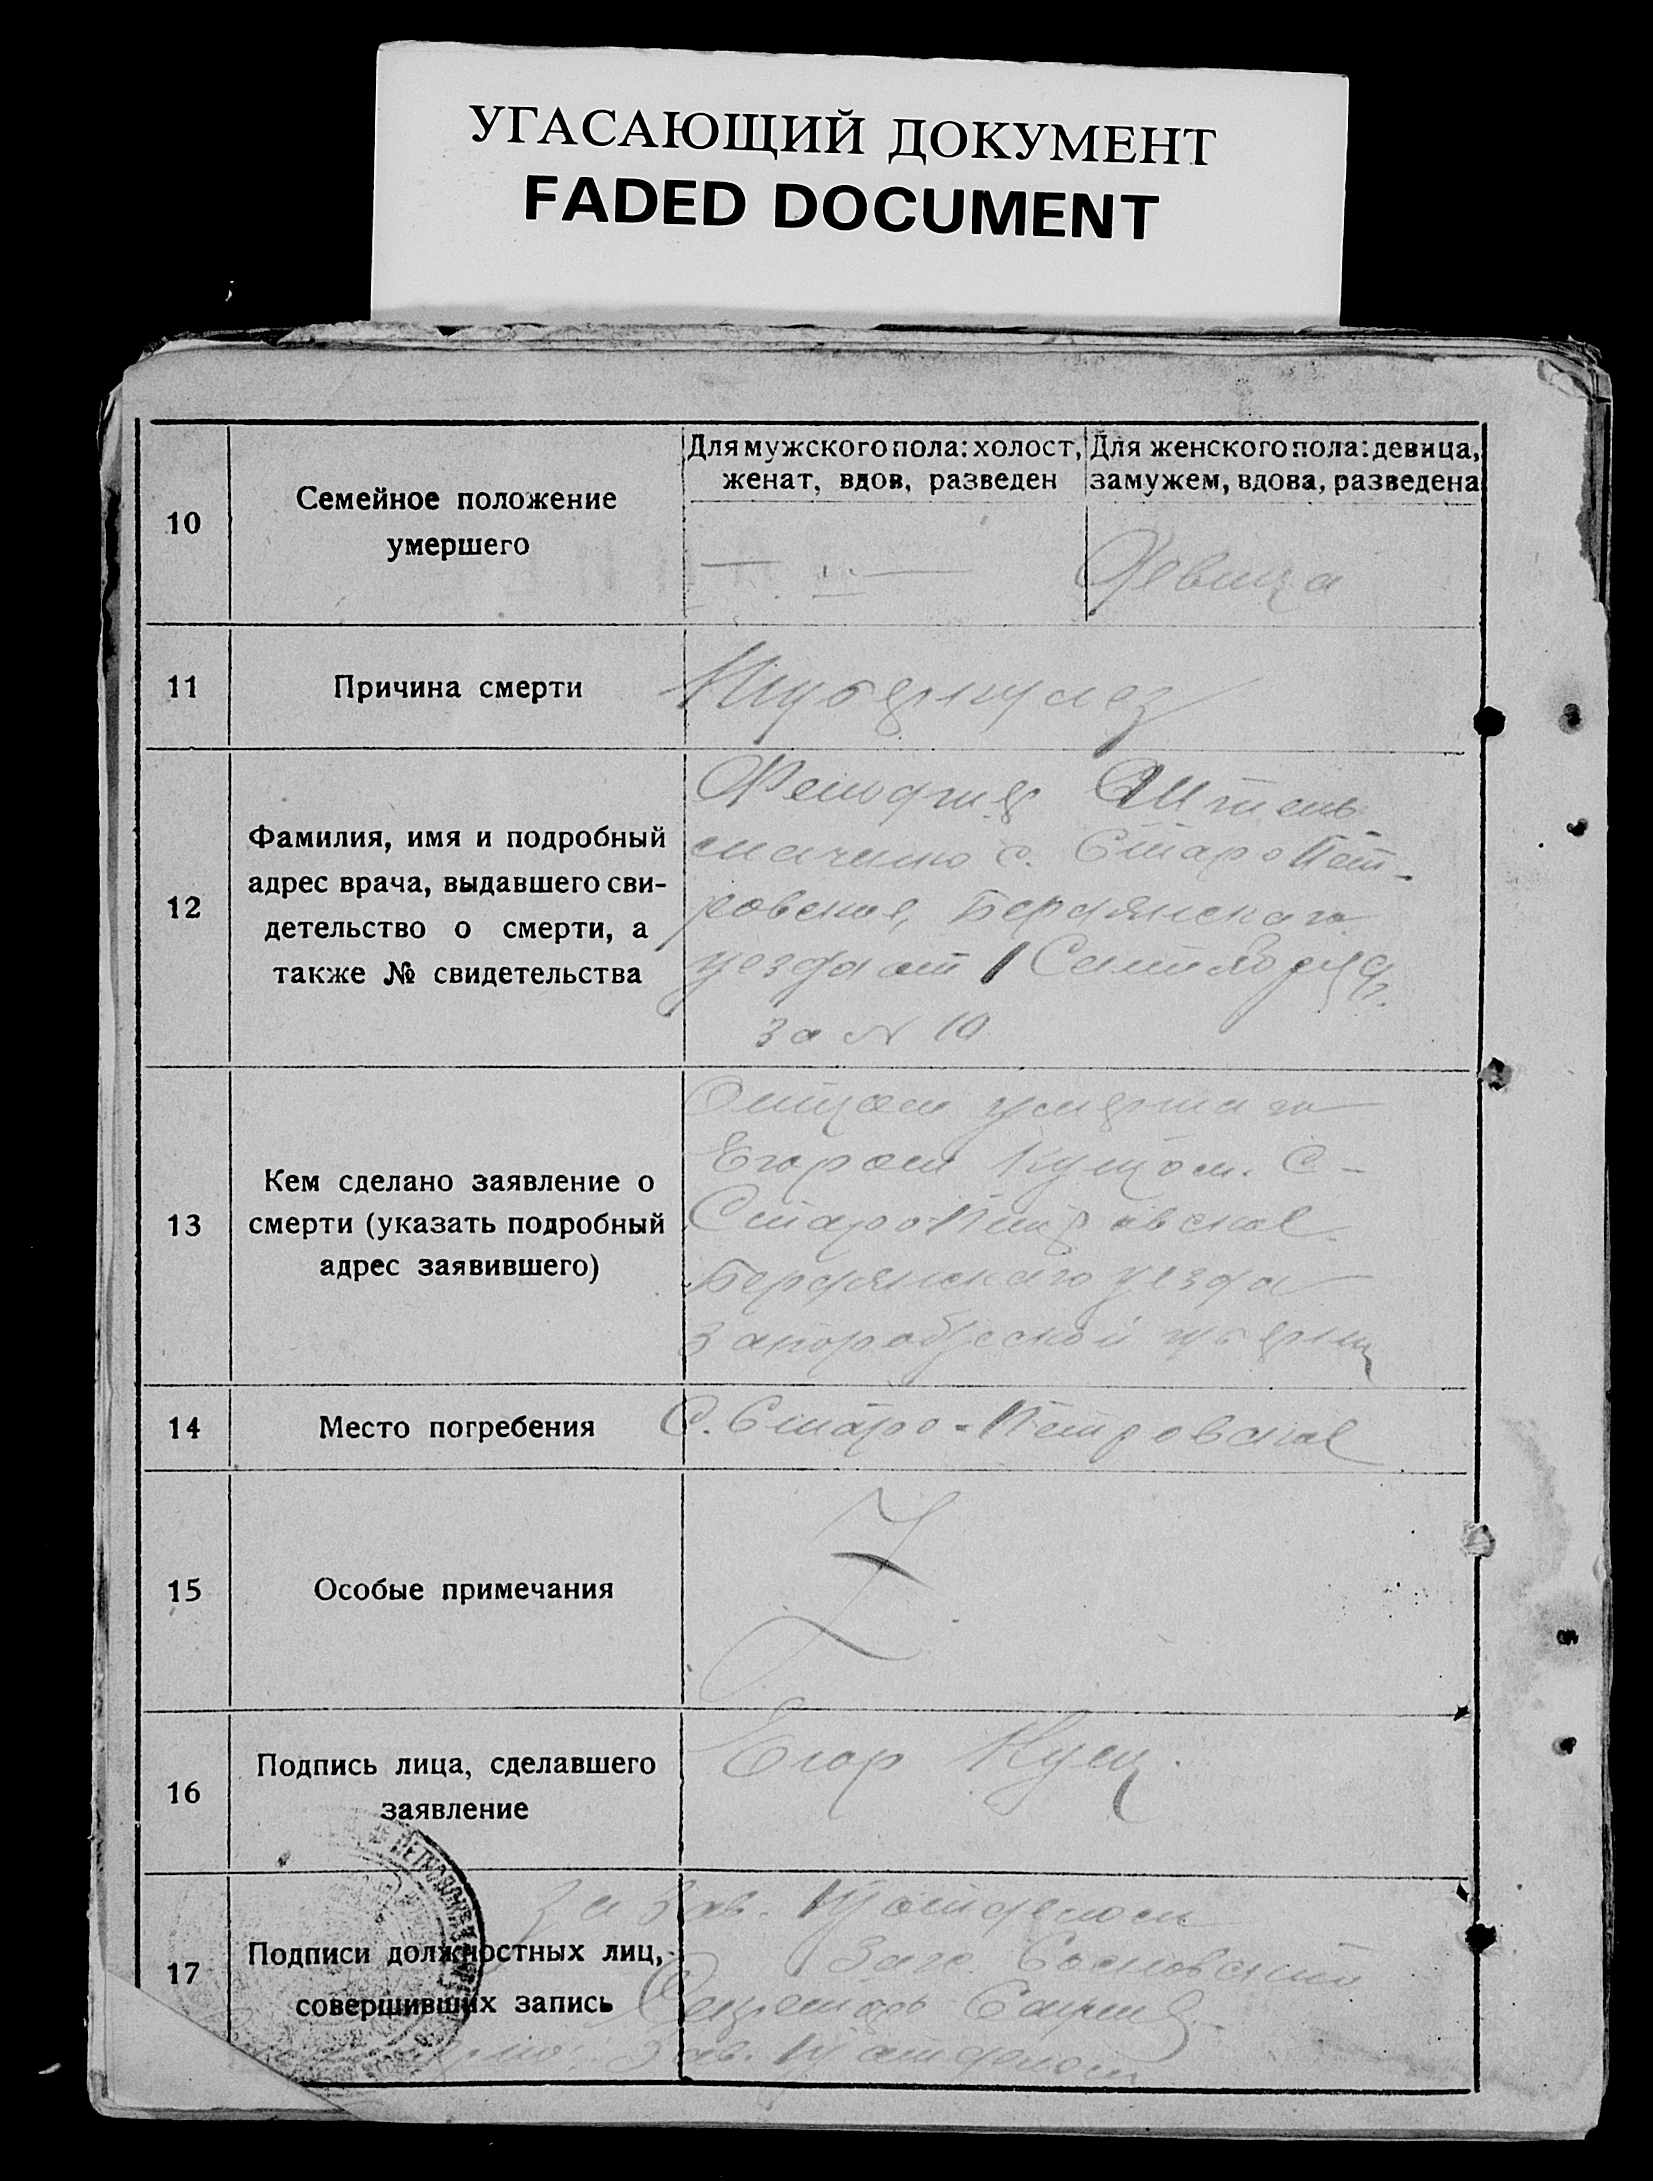 УГАСАЮЩИЙ ДОКУМЕНТ
FADED DOCUMENT
10
Семейное положение
умершего
Для мужского пола: холост,
женат, вдов, разведен
Для женского пола: девица,
замужем, вдова, разведена
Девица
11
Причина смерти
Туберкулез
12
Фамилия, имя и подробный
адрес врача, выдавшего сви-
детельство о смерти, а
также № свидетельства
с. Старо Пет-
ровское, Бердянского
уезда от 1 Сентября
за N 10
13
Кем сделано заявление о
смерти (указать подробный
адрес заявившего)
Отцом умершаго
Егором Куцом. С-
Старо Петровское
Бердянского уезда
Запорожской губернии
14
Место погребения
С. Старо-Петровское
15
Особые примечания
Z
16
Подпись лица, сделавшего
заявление
Егор Куц.
17
Подписи должностных лиц,
совершивших запись
За Зав.
Секретарь
Зав.